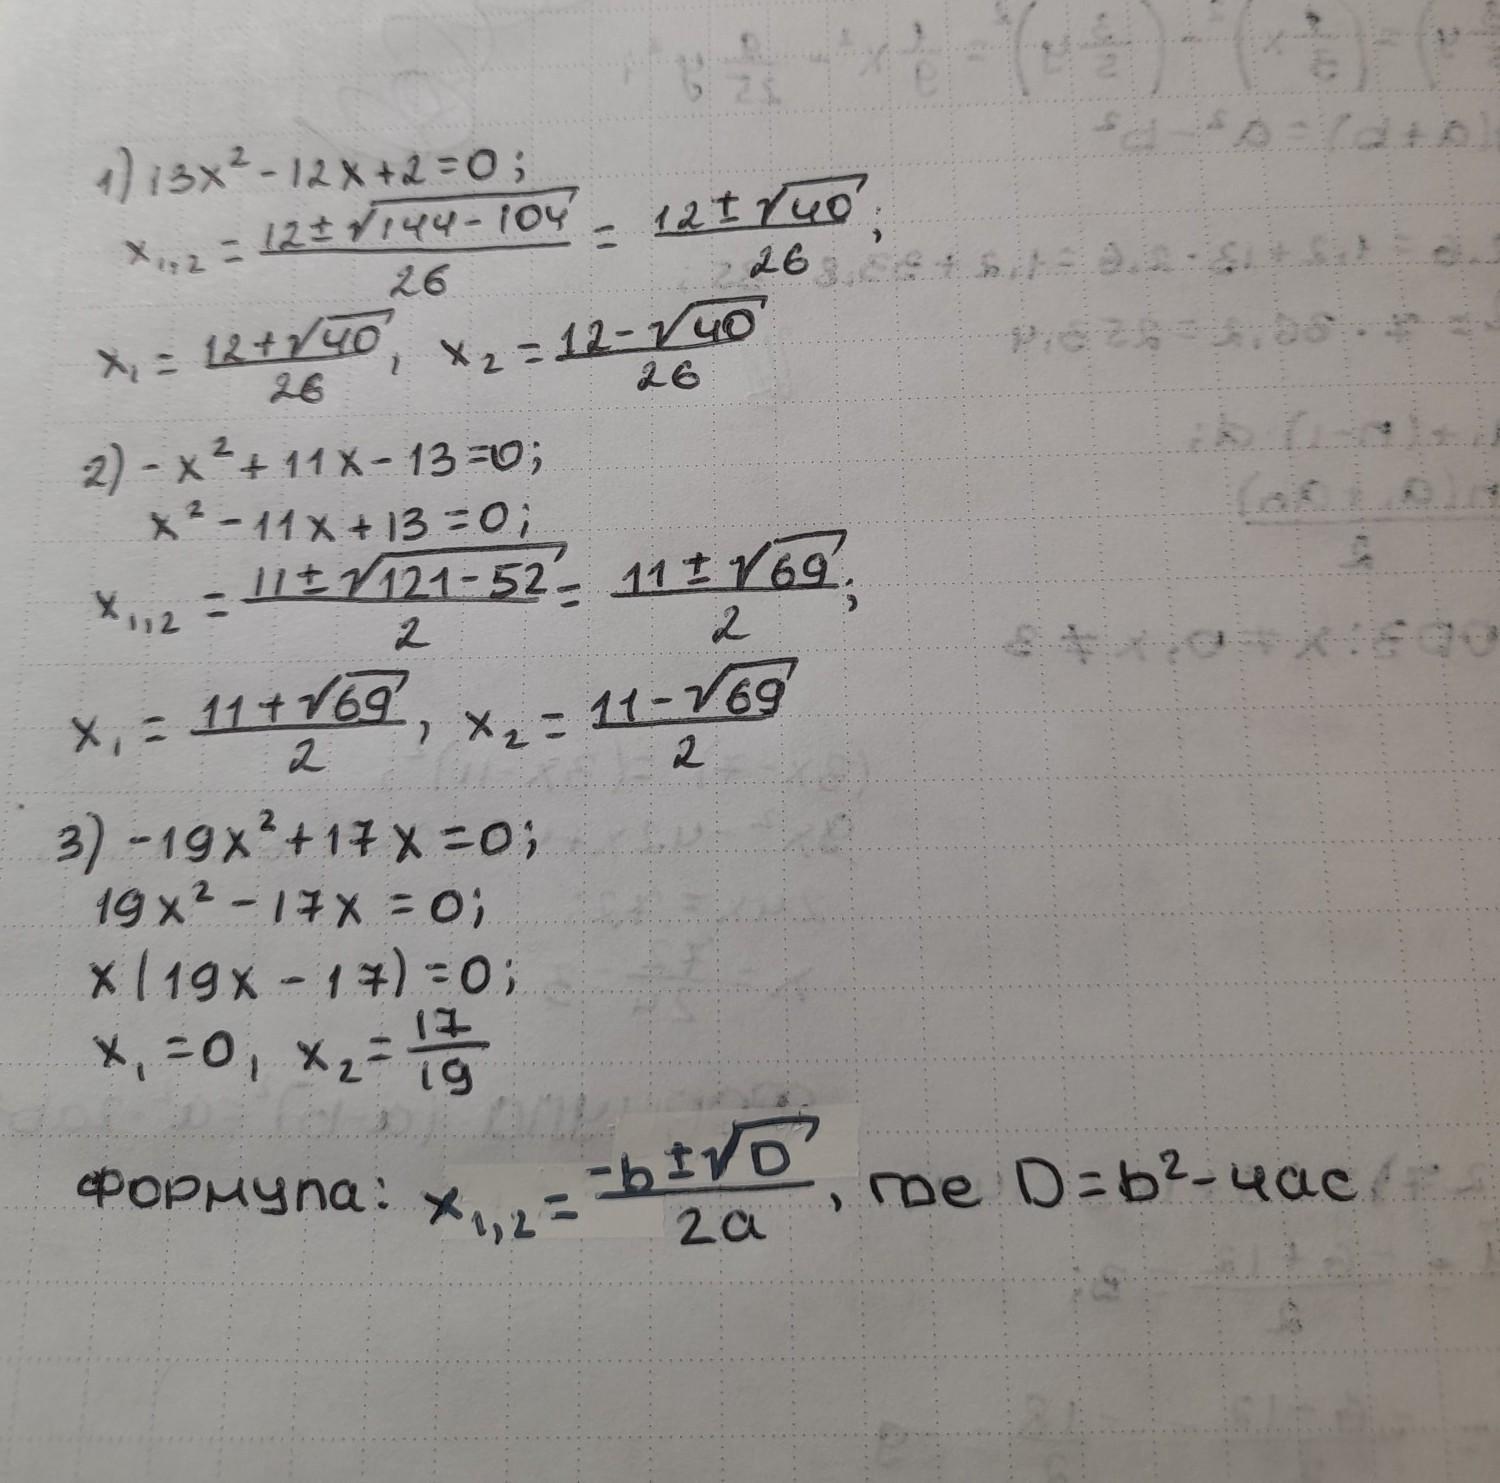 1) 13x² - 12x + 2 = 0;
x₁,₂ = (12 ± √(144 - 104))/26 = (12 ± √40)/26;
x₁ = (12 + √40)/26, x₂ = (12 - √40)/26
2) -x² + 11x - 13 = 0;
x² - 11x + 13 = 0;
x₁,₂ = (11 ± √(121 - 52))/2 = (11 ± √69)/2;
x₁ = (11 + √69)/2, x₂ = (11 - √69)/2
3) -19x² + 17x = 0;
19x² - 17x = 0;
x(19x - 17) = 0;
x₁ = 0, x₂ = 17/19
Формула: x₁,₂ = (-b ± √D)/2a, где D = b² - 4ac